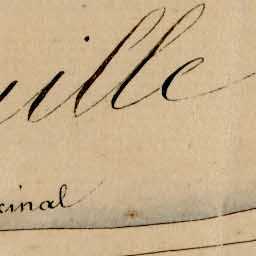 uille
ginal